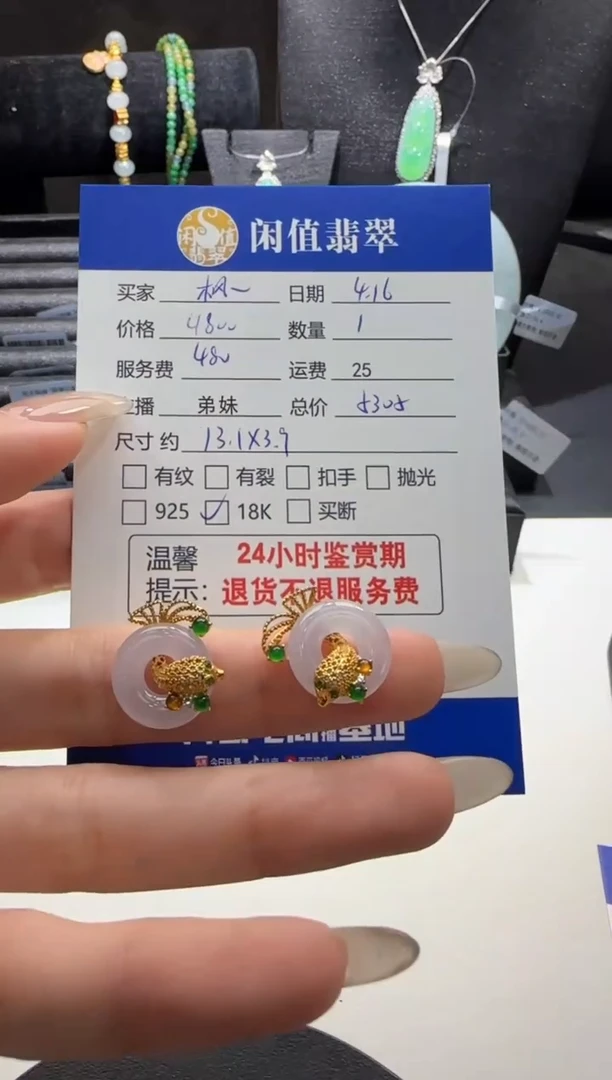 闲值翡翠
买家 枫一 日期 4.16
价格 4800 数量 1
服务费 480 运费 25
主播 弟妹 总价 5305
尺寸 约 13.1X3.9
有纹 有裂 扣手 抛光
925 18K 买断
温馨 24小时鉴赏期
提示: 退货不退服务费